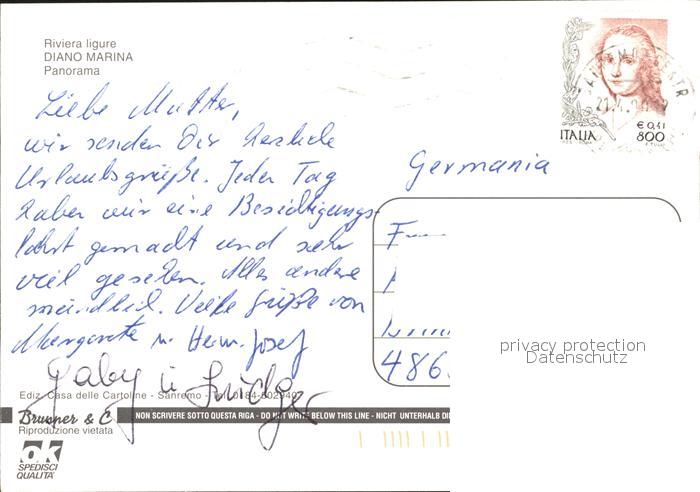 Riviera ligure
DIANO MARINA
Panorama
Liebe Mutter,
wir senden Dir herzliche
Urlaubsgrüße. Jeden Tag
haben wir eine Besichtigungs-
fahrt gemacht und sehr
viel gesehen. Alles andere
mündlich. Viele Grüße von
Margarete u. Heinr. Josef
Gaby u
ITALIA
€ 0,41
800
21.4.
Germania
F
486
privacy protection
Datenschutz
Ediz. Casa delle Cartoline - Sanremo - Tel. 0184-
Brunner & C
NON SCRIVERE SOTTO QUESTA RIGA - DO NOT WRITE BELOW THIS LINE - NICHT UNTERHALB DI
Riproduzione vietata
ok
SPEDISCI
QUALITA'